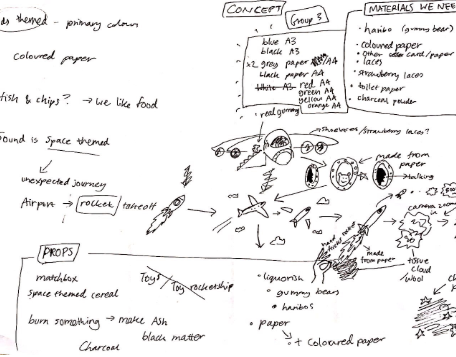 themed - primary colour
coloured paper
fish & chips? → we like food
Sound is space themed
unexpected journey
Airport → rocket / takeoff
CONCEPT
Group 3
blue A3
black A3
x2 grey paper /A4
black paper A4
white A3 red A4
green A4
yellow A4
orange A4
MATERIALS WE NEED
haribo (gummy bear)
coloured paper
other card/paper
laces
strawberry laces
toilet paper
charcoal powder
real gummy
shoelaces/strawberry laces?
made from paper
talking
camera zoom in
hand
made from paper
tissue cloud /wool
PROPS
matchbox
toys / toy rocketship
space themed cereal
burn something → make Ash
black matter
Charcoal
liquorish
gummy bears
haribos
paper
+ coloured paper